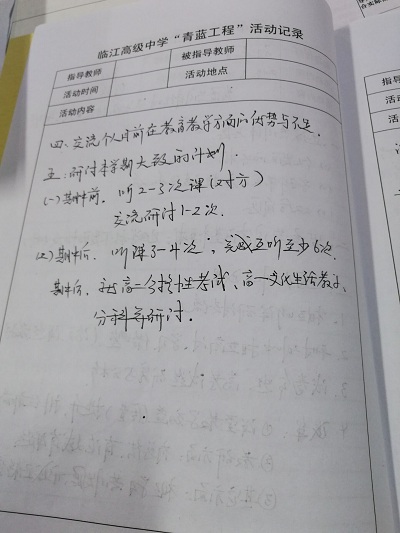 临江高级中学“青蓝工程”活动记录
指导教师 被指导教师
活动时间 活动地点
活动内容
四、交流个人目前在教育教学方面的优势与不足.
五:研讨本学期大致的计划.
(一)期中前. 听2-3次课(对方)
交流研讨1-2次.
(二)期中后. 听课3-4次;完成互听至少6次.
期中后. 针对高二合格性考试、高一文化生活教学、
分科等研讨.